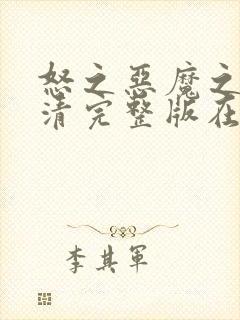 怒之惡魔之
清完整版在
李其軍